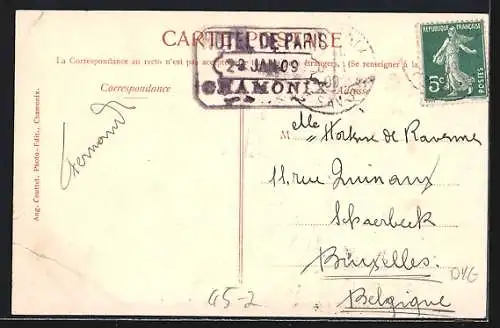 CARTE POSTALE
HOTEL DE PARIS
29 JAN 09
CHAMONIX
La Correspondance au recto n'est pas acceptée (Se renseigner à la
Correspondance
Adresse
REPUBLIQUE FRANÇAISE
5c
POSTES
Fernand
M elle Hortense de Ravenne
11. rue Quinaux
Schaerbeek
Bruxelles.
Belgique
OYG
45-2
Aug. Couttet, Photo-Édit., Chamonix.